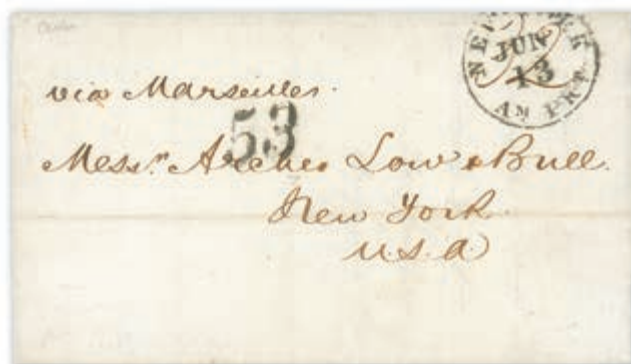 NEW YORK
JUN
13
AM PKT.
via Marseilles.
53
Mess.rs Archer Low & Bull.
New York
U.S.A